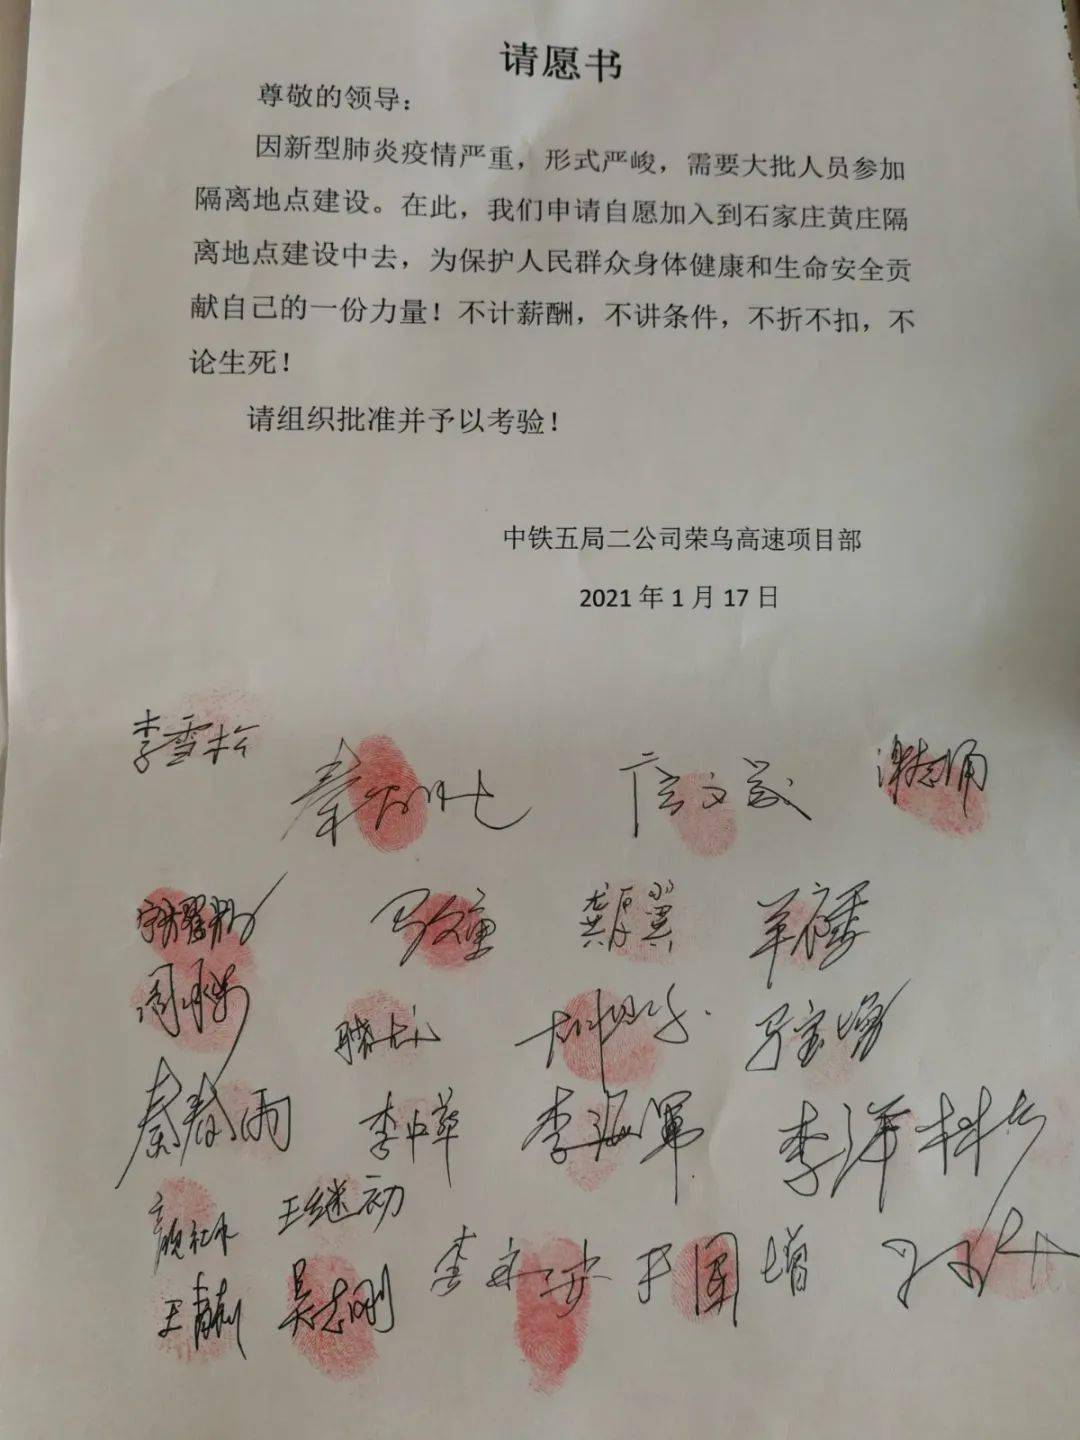 请愿书
尊敬的领导：
因新型肺炎疫情严重，形式严峻，需要大批人员参加
隔离地点建设。在此，我们申请自愿加入到石家庄黄庄隔
离地点建设中去，为保护人民群众身体健康和生命安全贡
献自己的一份力量！不计薪酬，不讲条件，不折不扣，不
论生死！
请组织批准并予以考验！
中铁五局二公司荣乌高速项目部
2021 年 1 月 17 日
李雪松
龚翼
马宝增
秦春雨 李中华 李海军 李洋
王继初
吴志刚 李永安 于国增